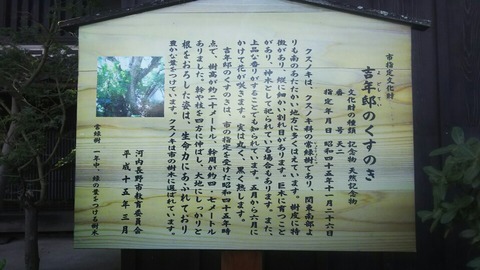 市指定文化財
吉年邸のくすのき
文化財の種類 記念物 天然記念物
番号 天二
指定年月日 昭和四十五年十一月二十六日
クスノキは、クスノキ科の常緑樹であり、関東南部よ
りも南のあたたかい地方に多くはえています。樹皮に特
徴があり、縦に細かい割れ目があります。巨木に育つこと
があり、神木として祀られている場合もあります。また、
上品な香りがすることでも知られています。五月から六月に
かけて花が咲きます。実は丸く、黒く熟します。
吉年邸のくすのきは、市の指定を受けた昭和四十五年時
点で、樹高が約二十メートル、幹周が約四・七メートル
ありました。幹や枝を四方に伸ばし、大地にしっかりと
根をおろした姿は、生命力にあふれており
豊かな葉をつけています。クスノキは市の樹木に選ばれています。
河内長野市教育委員会
平成十五年三月
常緑樹 一年中、緑の葉をつける樹木